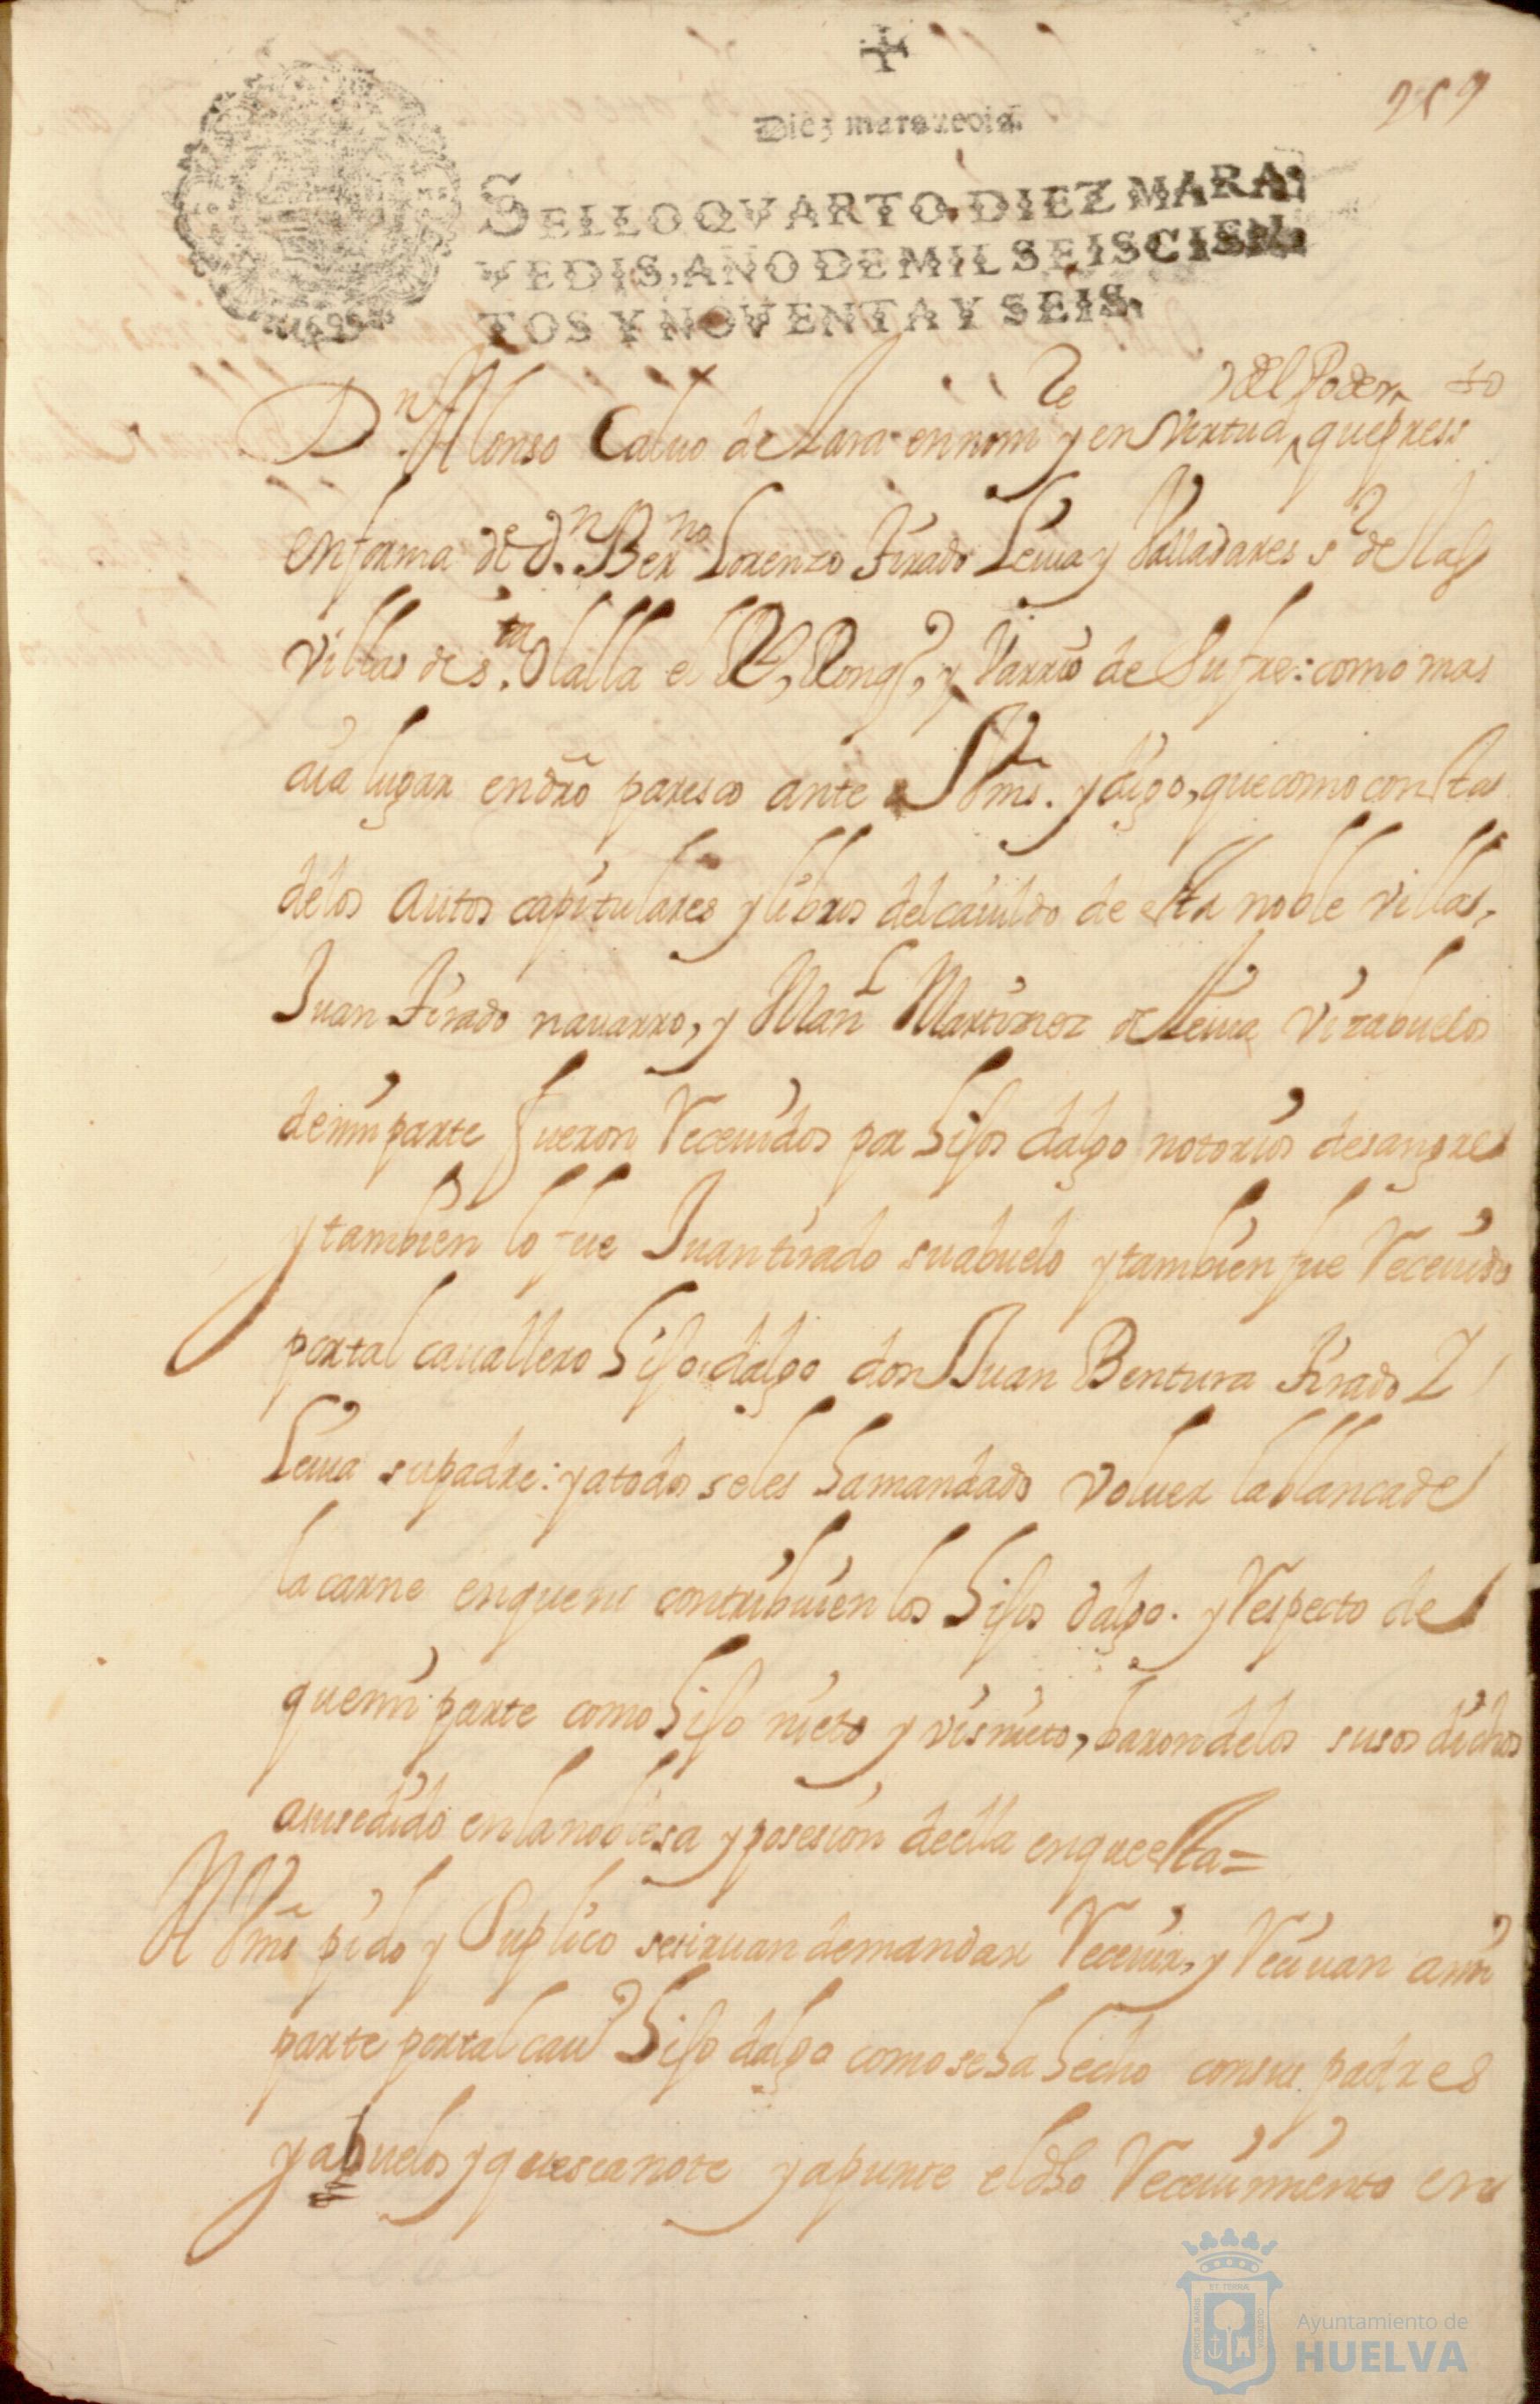 259
Diez maravedis.
SELLO QVARTO, DIEZ MARA-
VEDIS, AÑO DE MIL SEISCIEN-
TOS Y NOVENTA Y SEIS.
del Poder
Dn. Alonso Caluo de Lara en nomTe y en Vertud, que presSo
en forma de d.n Bernno Lorenzo Tirado Leiua y Valladares sr de las
villas de s.ta Olalla el Rl, Ronqo, y Varrio de Sufre: como mas
aia lugar en dro paresco ante Vms. y digo, que como consta
de los autos capitulares y libros del cauildo de esta noble villa,
Juan Tirado nauarro, y Manl Martinez de Leiua Vizabuelos
de mi parte fueron Receuidos por hijos dalgo notorios de sangre
y tambien lo fue Juan tirado su abuelo y tambien fue Receuido
por tal cauallero hijo dalgo don Juan Bentura Tirado
Leiua su padre: y a todos se les ha mandado voluer la blanca de
la carne en que no contribuien los hijos dalgo. y Respecto de
que mi parte como hijo nieto y visnieto, baron de los susos dichos
a susedido en la noblesa y posesion de ella en que esta=
A Vms pido y Suplico se siruan de mandar Receuir, y Reciuan a mi
parte por tal cauo hijo dalgo como se ha hecho con su padre
y abuelos y que se anote y apunte el dho Receuimiento en
Ayuntamiento de
HUELVA